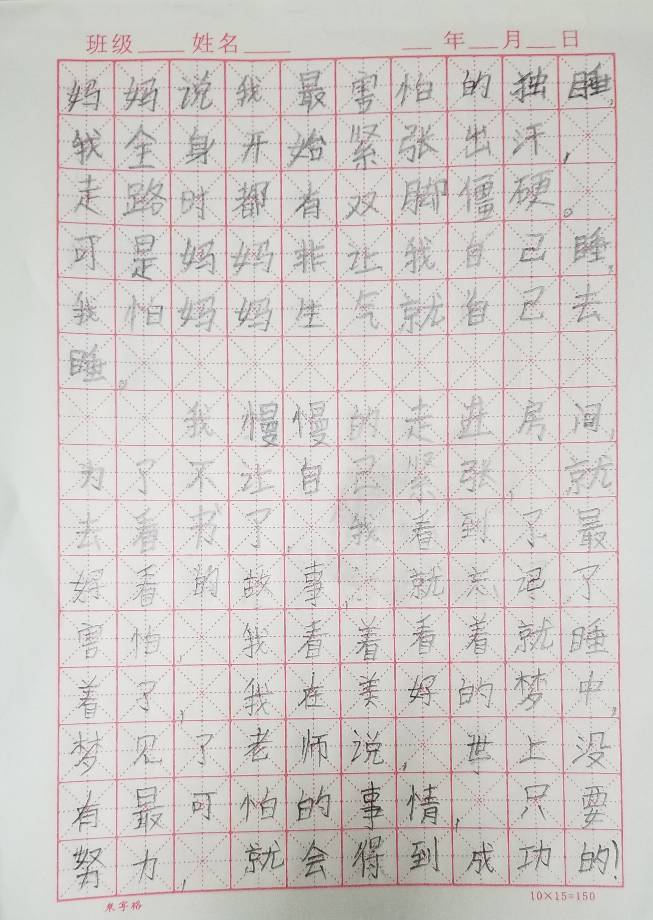 班级____ 姓名____ ___年___月___日
妈妈说我最害怕的独睡,
我全身开始紧张出汗,
走路时都有双脚僵硬。
可是妈妈非让我自己睡。
我怕妈妈生气就自己去
睡。
我慢慢的走进房间,
为了不让自己紧张,就
去看书了,我看到了最
好看的故事,就忘记了
害怕,我看着看着就睡
着了,我在美好的梦中,
梦见了老师说,世上没
有最可怕的事情,只要
努力,就会得到成功的!
10×15=150